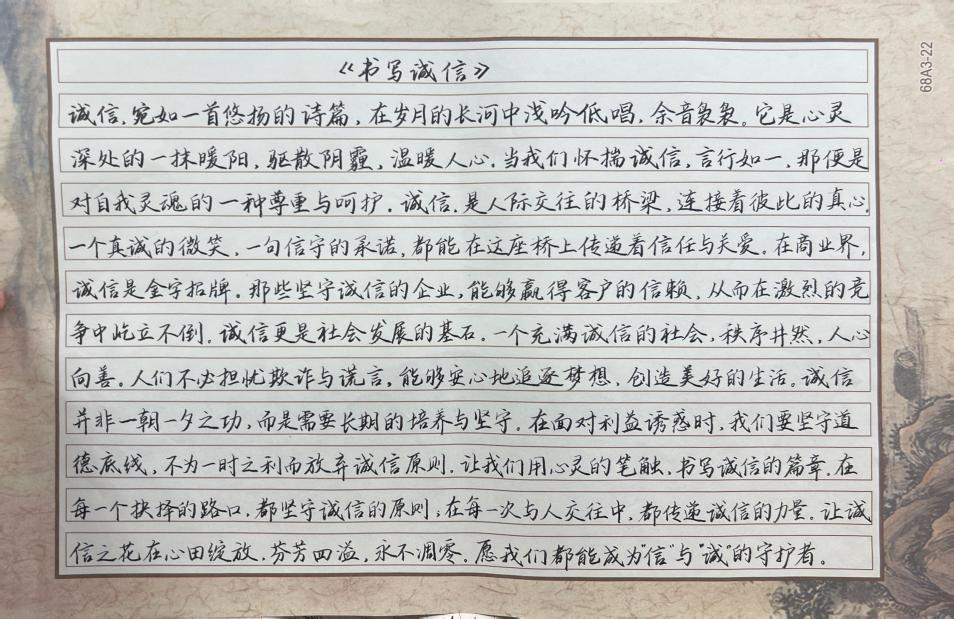 《书写诚信》
诚信，宛如一首悠扬的诗篇，在岁月的长河中浅吟低唱，余音袅袅。它是心灵
深处的一抹暖阳，驱散阴霾，温暖人心。当我们怀揣诚信，言行如一，那便是
对自我灵魂的一种尊重与呵护。诚信，是人际交往的桥梁，连接着彼此的真心。
一个真诚的微笑，一句信守的承诺，都能在这座桥上传递着信任与关爱。在商业界，
诚信是金字招牌。那些坚守诚信的企业，能够赢得客户的信赖，从而在激烈的竞
争中屹立不倒。诚信更是社会发展的基石。一个充满诚信的社会，秩序井然，人心
向善。人们不必担忧欺诈与谎言，能够安心地追逐梦想，创造美好的生活。诚信
并非一朝一夕之功，而是需要长期的培养与坚守。在面对利益诱惑时，我们要坚守道
德底线，不为一时之利而放弃诚信原则。让我们用心灵的笔触，书写诚信的篇章。在
每一个抉择的路口，都坚守诚信的原则；在每一次与人交往中，都传递诚信的力量。让诚
信之花在心田绽放，芬芳四溢，永不凋零。愿我们都能成为"信"与"诚"的守护者。
68A3-22